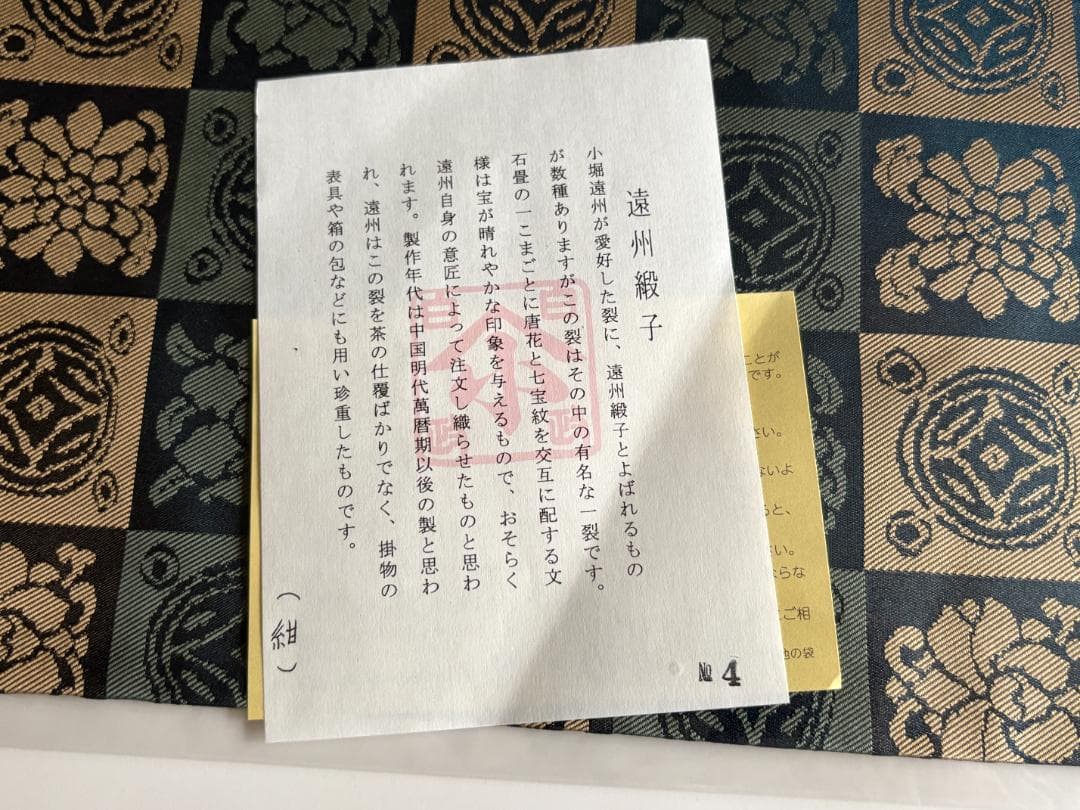 遠州緞子
小堀遠州が愛好した裂に、遠州緞子とよばれるもの
が数種ありますがこの裂はその中の有名な一裂です。
石畳の一こまごとに唐花と七宝紋を交互に配する文
様は宝が晴れやかな印象を与えるもので、おそらく
遠州自身の意匠によって注文し織らせたものと思わ
れます。製作年代は中国明代萬暦期以後の製と思わ
れ、遠州はこの裂を茶の仕覆ばかりでなく、掛物の
表具や箱の包などにも用い珍重したものです。
(紺)
№ 4
ことが
です。
さい。
ないよ
ると、
さい。
ならな
ご相
他の袋